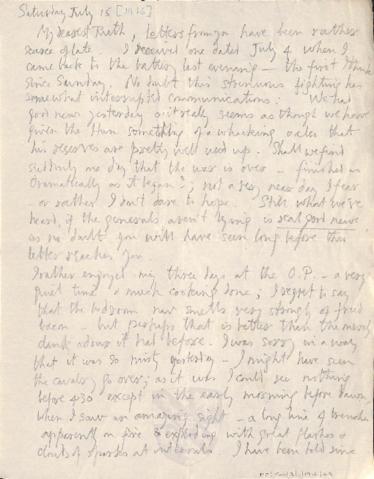 Saturday July 15 [1916]
My dearest Ruth, letters from you have been rather
scarce of late. I received one dated July 4 when I
came back to the battery last evening – the first I think
since Sunday. No doubt this strenuous fighting has
somewhat interrupted communications. We had
good news yesterday & it really seems as though we have
given the Hun something of a whacking & also that
his reserves are pretty well used up. Shall we find
suddenly one day that the war is over – finished as
dramatically as it began?; not a very near day I fear
– or rather I don't dare to hope. Still what we've
heard, if the generals aren't lying is real good news
as no doubt you will have seen long before this
letter reaches you.
I rather enjoyed my three days at the O.P. – a very
quiet time & much cooking done; I regret to say
that the bedroom now smells very strongly of fried
bacon – but perhaps that is better than the merely
dank odour it had before. I was sorry in a way
that it was so misty yesterday – I might have seen
the cavalry go over; as it was I could see nothing
before 4.30 except in the early morning before dawn,
when I saw an amazing sight – a long line of trenches
apparently on fire & exploding with great flashes &
clouds of sparks at intervals. I have been told since